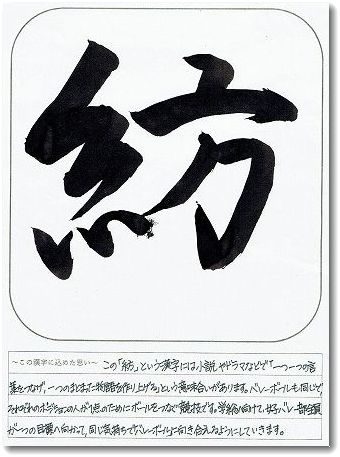 紡
～この漢字に込めた思い～ この「紡」という漢字には小説やドラマなどで"一つ一つの言
葉をつなげ、一つのまとまった物語を作り上げる"という意味合いがあります。バレーボールも同じで、
それぞれのポジションの人が1点のためにボールをつなぐ競技です。学総へ向けて、女子バレー部全員
が一つの目標へ向かって、同じ気持ちでバレーボールに向き合えるようにしていきます。